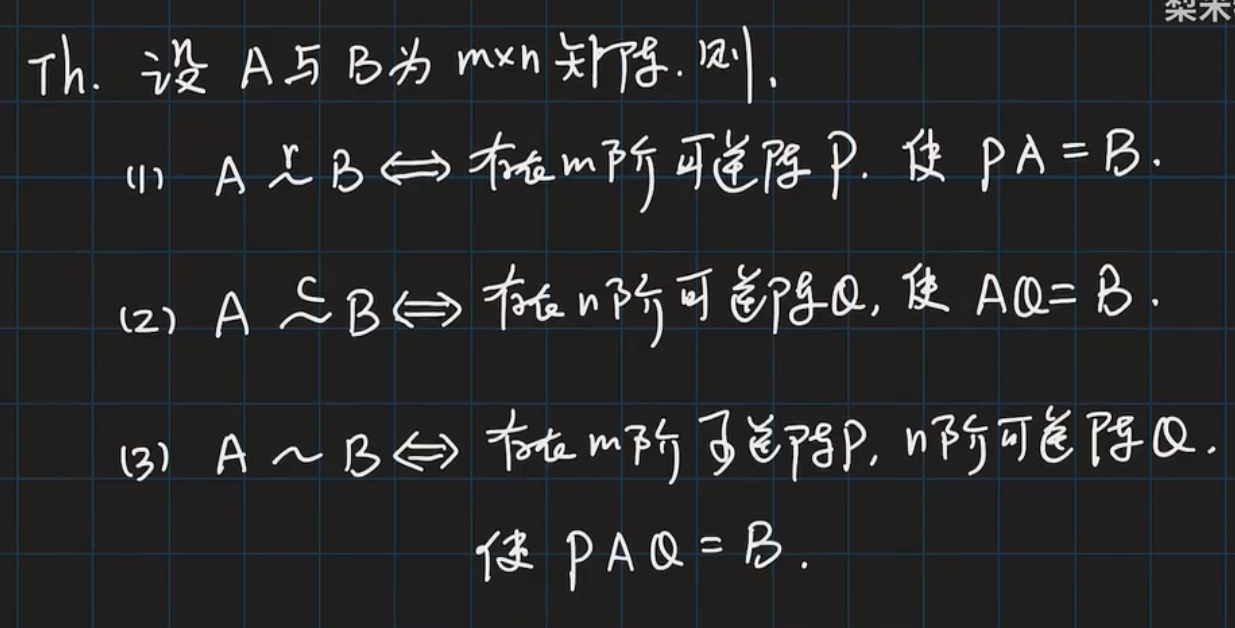 梨米
Th. 设 A与B为 m×n 矩阵. 则.
(1) A r~ B ⟺ 存在m阶可逆阵P. 使 PA=B.
(2) A c~ B ⟺ 存在n阶可逆阵Q, 使 AQ=B.
(3) A ~ B ⟺ 存在m阶可逆阵P, n阶可逆阵Q.
使 PAQ=B.